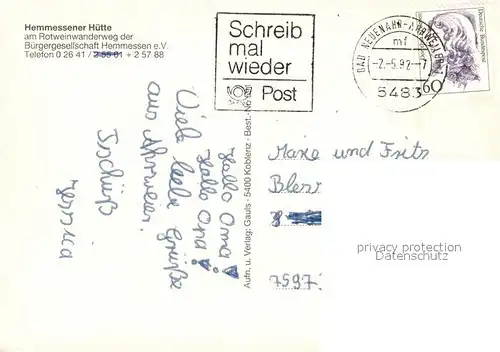 Hemmessener Hütte
am Rotweinwanderweg der
Bürgergesellschaft Hemmessen e.V.
Telefon 0 26 41 / 2 55 01 + 2 57 88
Schreib
mal
wieder
Post
BAD NEUENAHR-AHRWEILER 1
mf
-2.-5.92.-7
5483
Deutsche Bundespost
60
Hallo Oma!
Hallo Opa!
Viele liebe Grüße
aus Ahrweiler.
Tschüß
Aufn. u. Verlag: Gauls · 5400 Koblenz · Best.-No
und Frits
7597
privacy protection
Datenschutz